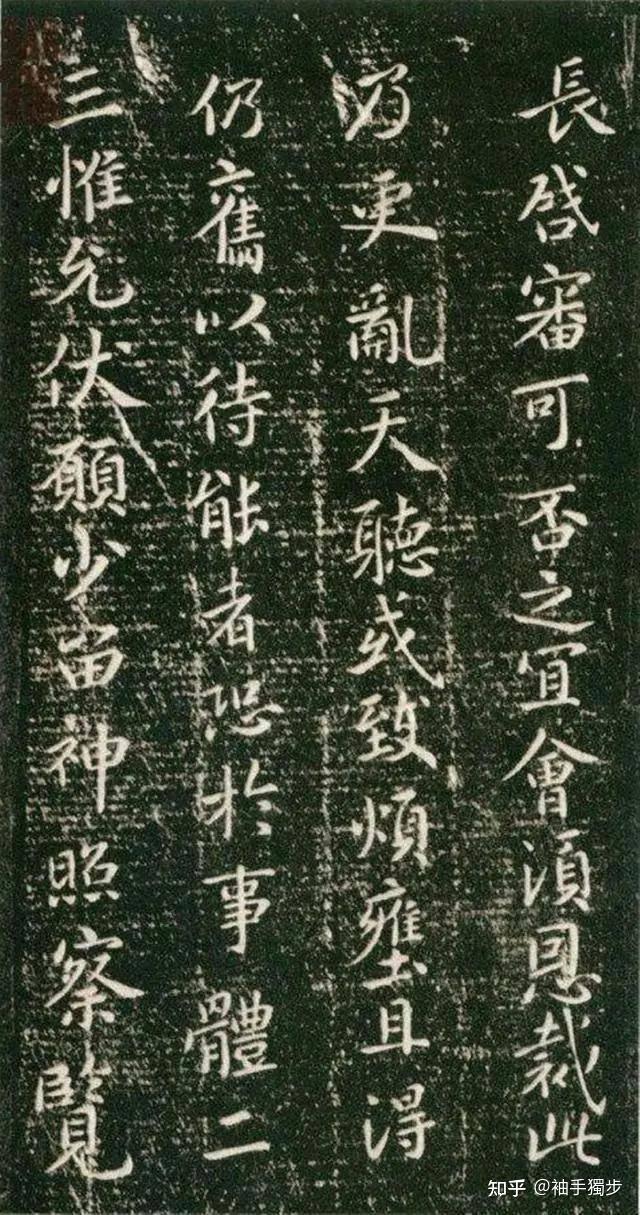 長啓審可否之宜會須恩裁此
爲更亂天聽或致煩壅且得
仍舊以待能者恐於事體二
三惟允伏願少留神照察覽
知乎 @袖手獨步